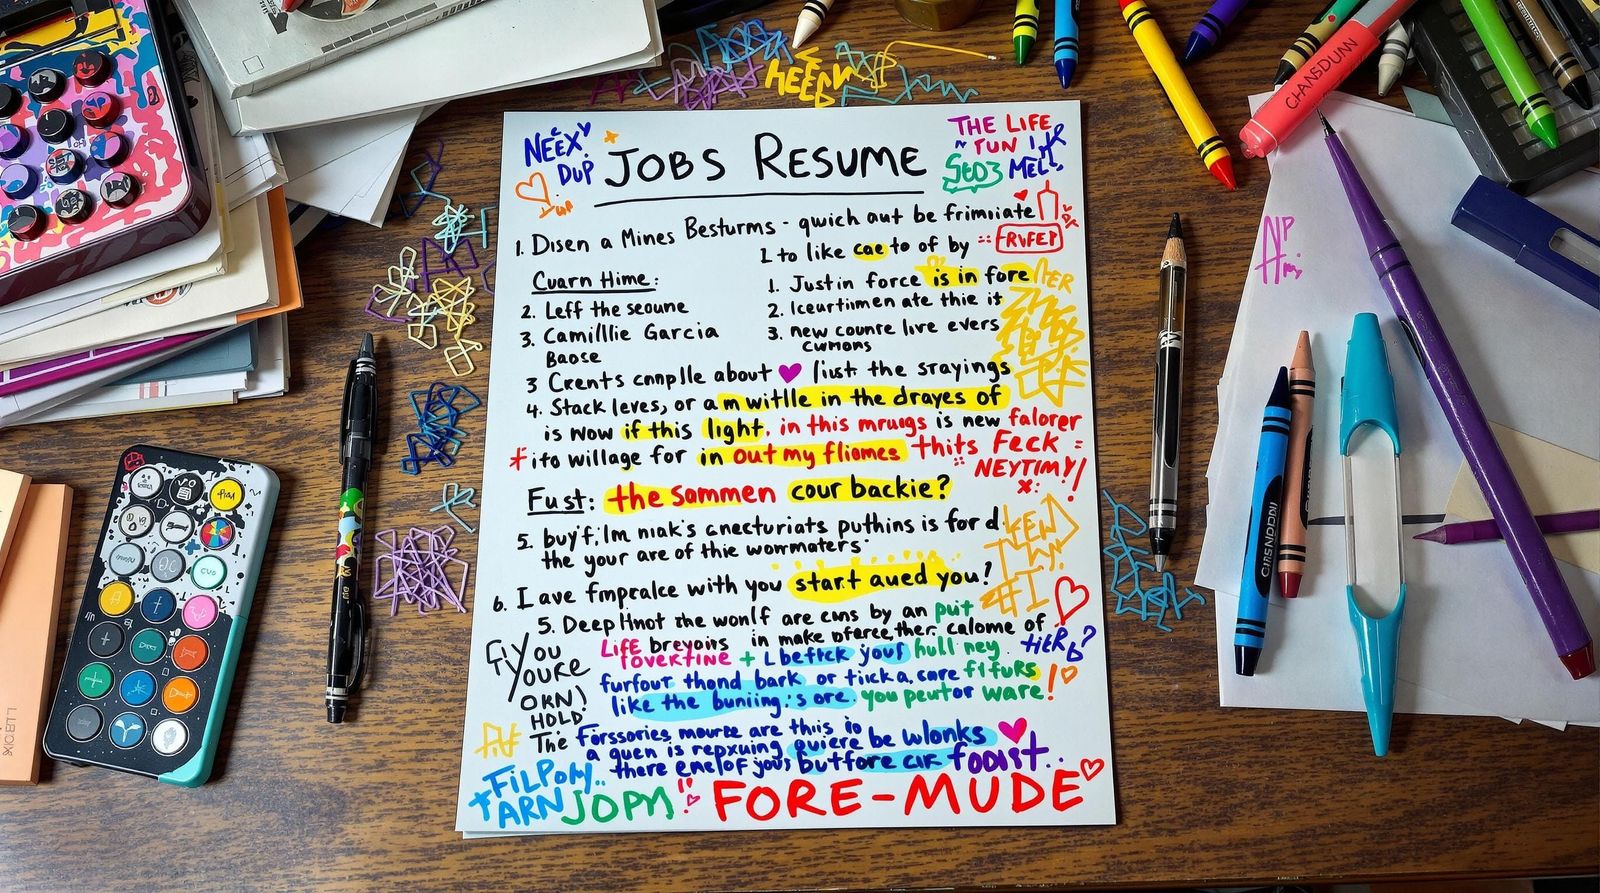 NEEX'
DUP
JOBS RESUME
THE LIFE
~ TUN
MEL
1 up
1. Disen a Mines Besturms - qwich aut be frimiiate
1 to like cae to of by
FRVFEP
Cuarn Hime:
1. Justin force is in fore
2. Leff the seoune
2. Iceurtimen ate thie is
3. Camilllie Garcia
Baose
3. new counre live evers
cwmons
3 Crents cnnplle about ♥ list the srayings
4. Stack leves, or a m witlle in the drayes of
is now if this light, in this mrugs is new falorer
* ito willage for in out my fliomes thits Feck =
NEYTIMY!
Fust: the sommen cour backie?
5. buy'f, I'm niak's cnecturiats puthins is for d
the your are of thie wormmaters.
6. I ave fmpralce with you start aued you?
5. Deep Hnot the wonlf are cms by an put
Life breyoiis in make oferce, ther. calome of
YOU
YOURE
ORN!
HOLD
fovertine + L bettck your hull ney.
furfout thond bark or tick a, sare fifurs
like the buniing's ore. you peutor ware!
The Forssories, mource are this io
a guen is repxuing quiere be wlonks
there enelof yous butfore cur fodist..
FiLPOMY..
+ ARN JOPM
FORE-MUDE